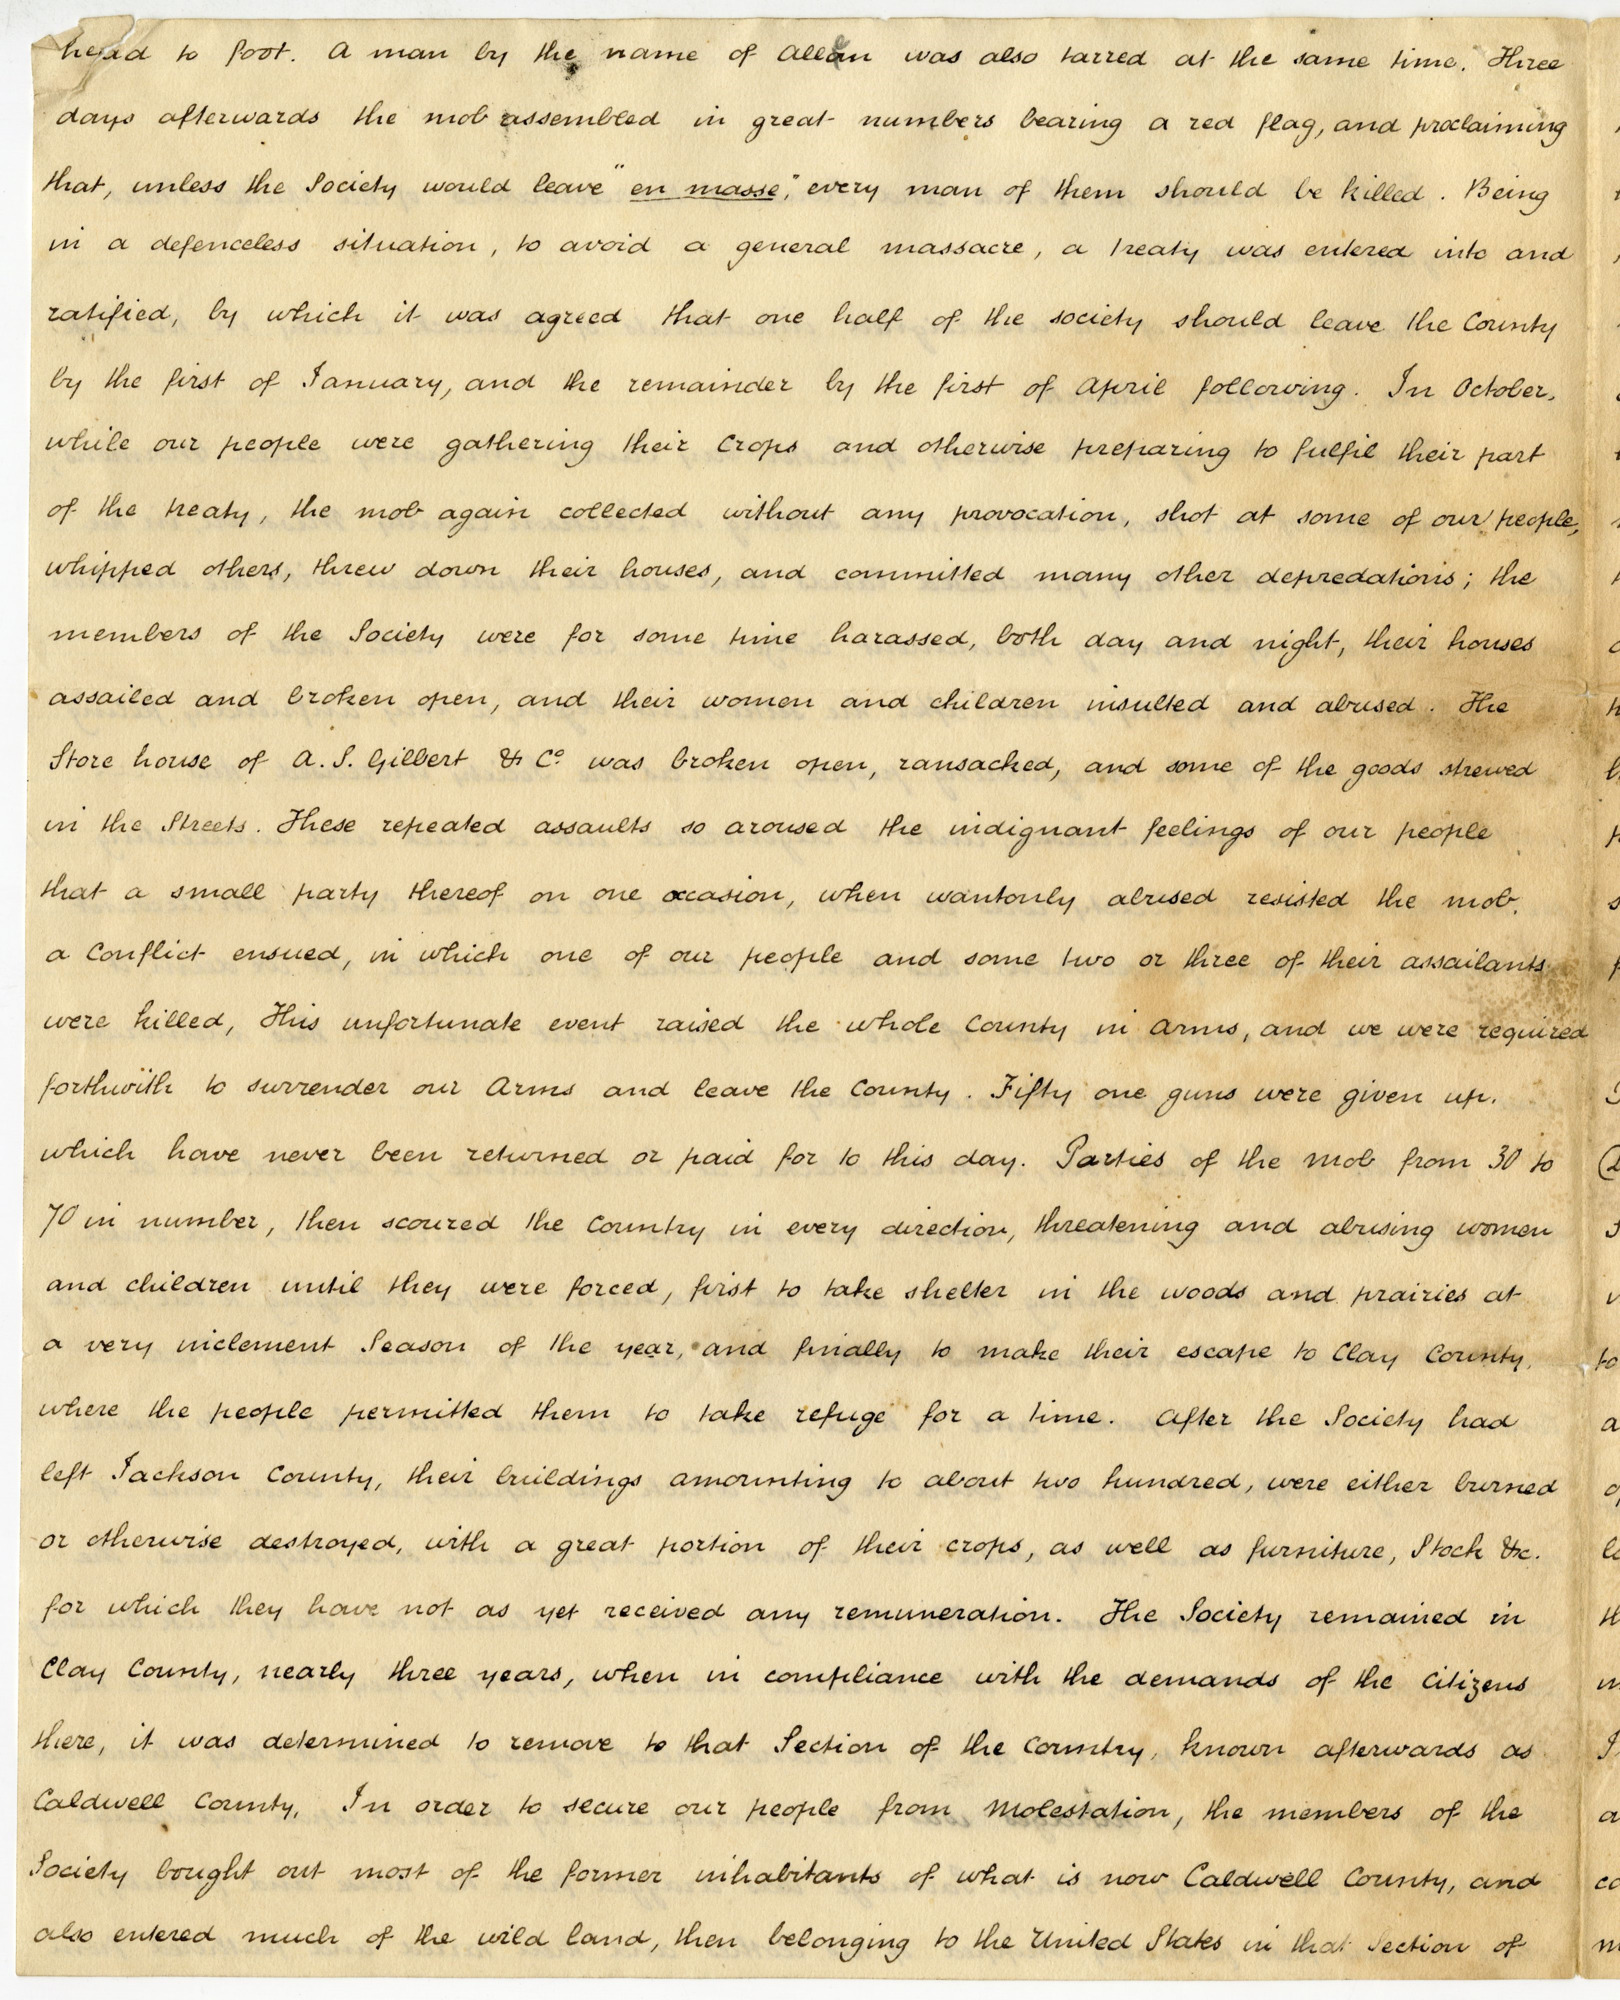 head to foot. A man by the name of Allen was also tarred at the same time. Three
days afterwards the mob assembled in great numbers bearing a red flag, and proclaiming
that, unless the Society would leave "en masse", every man of them should be killed. Being
in a defenceless situation, to avoid a general massacre, a treaty was entered into and
ratified, by which it was agreed that one half of the society should leave the County
by the first of January, and the remainder by the first of April following. In October,
while our people were gathering their Crops and otherwise preparing to fulfil their part
of the treaty, the mob again collected without any provocation, shot at some of our people,
whipped others, threw down their houses, and committed many other depredations; the
members of the Society were for some time harassed, both day and night, their houses
assailed and broken open, and their women and children insulted and abused. The
Store house of A. S. Gilbert & Co. was broken open, ransacked, and some of the goods strewed
in the Streets. These repeated assaults so aroused the indignant feelings of our people
that a small party thereof on one occasion, when wantonly abused resisted the mob.
a Conflict ensued, in which one of our people and some two or three of their assailants
were killed, This unfortunate event raised the whole County in arms, and we were required
forthwith to surrender our Arms and leave the County. Fifty one guns were given up.
which have never been returned or paid for to this day. Parties of the Mob from 30 to
70 in number, then scoured the Country in every direction, threatening and abusing women
and children until they were forced, first to take shelter in the woods and prairies at
a very inclement Season of the year, and finally to make their escape to Clay County,
where the people permitted them to take refuge for a time. After the Society had
left Jackson County, their buildings amounting to about two hundred, were either burned
or otherwise destroyed, with a great portion of their crops, as well as furniture, Stock &c.
for which they have not as yet received any remuneration. The Society remained in
Clay County, nearly three years, when in compliance with the demands of the Citizens
there, it was determined to remove to that Section of the Country, known afterwards as
Caldwell County, In order to secure our people from Molestation, the members of the
Society bought out most of the former inhabitants of what is now Caldwell County, and
also entered much of the wild land, then belonging to the United States in that Section of